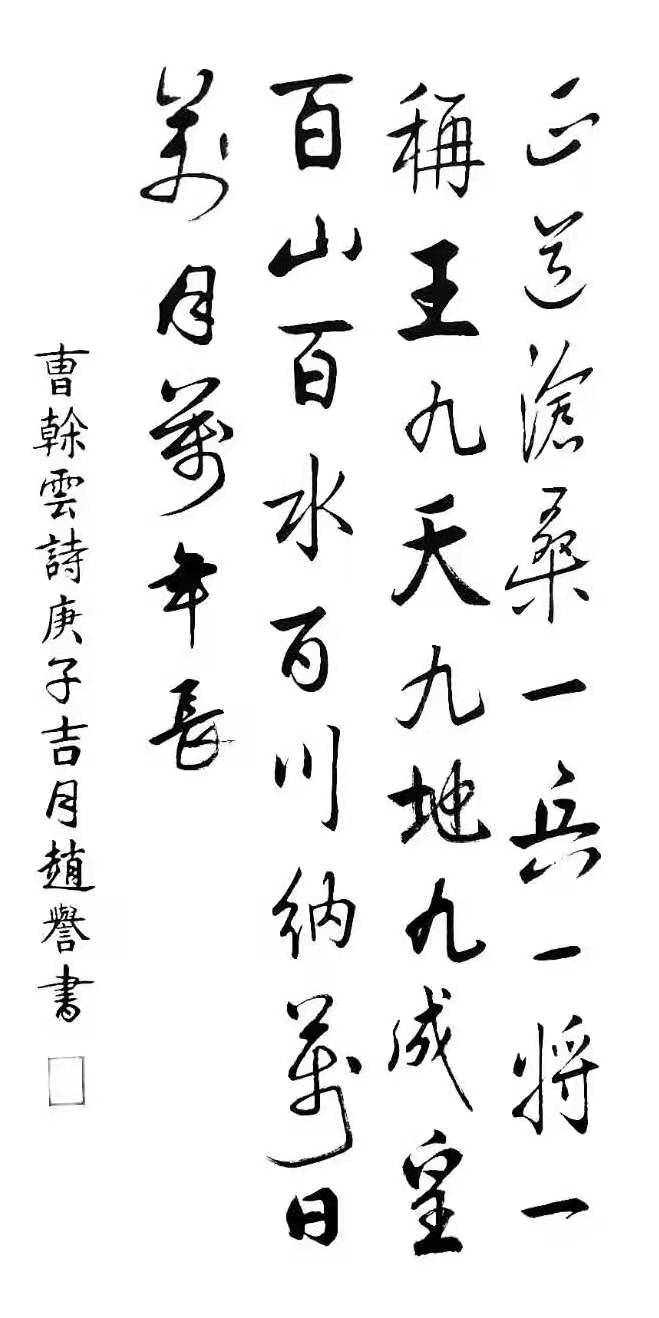 正道滄桑一兵一將一
稱王九天九地九成皇
百山百水百川納萬日
萬月萬年長
曹榦雲詩庚子吉月趙譽書